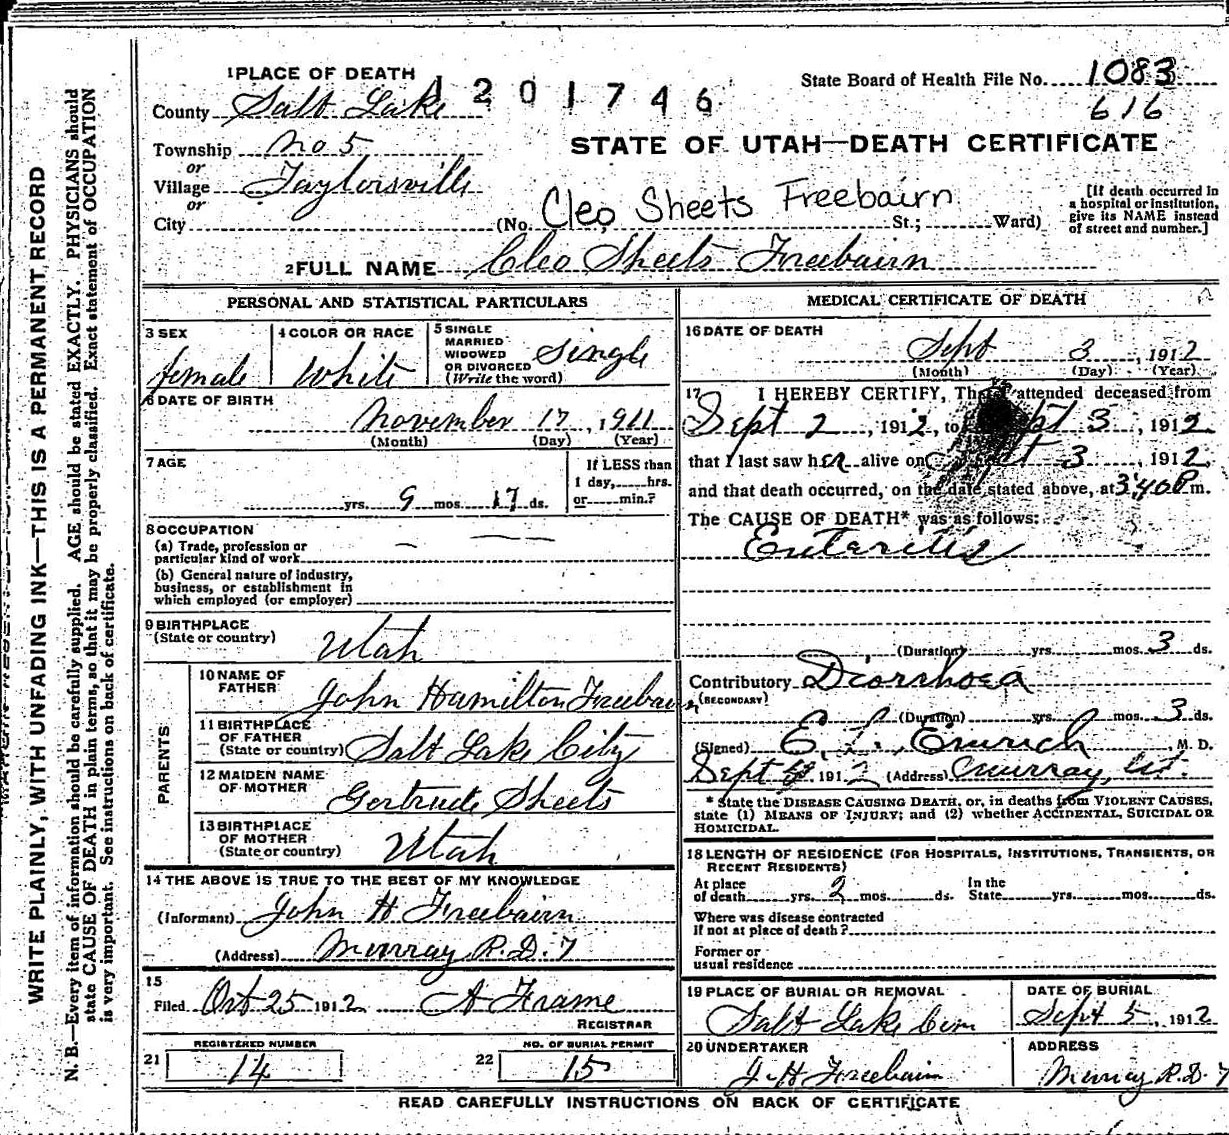 1 PLACE OF DEATH
1 2 0 1 7 4 6
State Board of Health File No. 1083
616
County Salt Lake
STATE OF UTAH—DEATH CERTIFICATE
Township No 5
or
Village Taylorsville
or
City
(No. Cleo Sheets Freebairn St.; Ward)
[If death occurred in
a hospital or institution,
give its NAME instead
of street and number.]
2 FULL NAME Cleo Sheets Freebairn
PERSONAL AND STATISTICAL PARTICULARS
3 SEX
female
4 COLOR OR RACE
White
5 SINGLE
MARRIED
WIDOWED
OR DIVORCED
(Write the word)
Single
6 DATE OF BIRTH
November 17, 1911
(Month) (Day) (Year)
7 AGE
yrs. 9 mos. 17 ds.
If LESS than
1 day, hrs.
or min.?
8 OCCUPATION
(a) Trade, profession or
particular kind of work
(b) General nature of industry,
business, or establishment in
which employed (or employer)
9 BIRTHPLACE
(State or country)
Utah
PARENTS
10 NAME OF
FATHER
John Hamilton Freebairn
11 BIRTHPLACE
OF FATHER
(State or country) Salt Lake City
12 MAIDEN NAME
OF MOTHER
Gertrude Sheets
13 BIRTHPLACE
OF MOTHER
(State or country) Utah
14 THE ABOVE IS TRUE TO THE BEST OF MY KNOWLEDGE
(Informant) John H Freebairn
(Address) Murray R.D. 7
15
Filed Oct 25 1912 A Frame
REGISTRAR
21 REGISTERED NUMBER
14
22 NO. OF BURIAL PERMIT
15
MEDICAL CERTIFICATE OF DEATH
16 DATE OF DEATH
Sept 3, 1912
(Month) (Day) (Year)
17 I HEREBY CERTIFY, That I attended deceased from
Sept 2, 1912, to Sept 3, 1912
that I last saw her alive on Sept 3, 1912,
and that death occurred, on the date stated above, at 3:40 P m.
The CAUSE OF DEATH* was as follows:
Entaritis
(Duration) yrs. mos. 3 ds.
Contributory Diorrhoea
(SECONDARY)
(Duration) yrs. mos. 3 ds.
(Signed) E. L. Emrich, M. D.
Sept 1912 (Address) Murray, Ut.
* State the DISEASE CAUSING DEATH, or, in deaths from VIOLENT CAUSES,
state (1) MEANS OF INJURY; and (2) whether ACCIDENTAL, SUICIDAL OR
HOMICIDAL.
18 LENGTH OF RESIDENCE (FOR HOSPITALS, INSTITUTIONS, TRANSIENTS, OR
RECENT RESIDENTS)
At place
of death yrs. 2 mos. ds.
In the
State yrs. mos. ds.
Where was disease contracted
if not at place of death?
Former or
usual residence
19 PLACE OF BURIAL OR REMOVAL
Salt Lake Cem
DATE OF BURIAL
Sept 5, 1912
20 UNDERTAKER
J. H Freebairn
ADDRESS
Murray R.D. 7
READ CAREFULLY INSTRUCTIONS ON BACK OF CERTIFICATE
WRITE PLAINLY, WITH UNFADING INK—THIS IS A PERMANENT RECORD
N. B.—Every item of information should be carefully supplied. AGE should be stated EXACTLY. PHYSICIANS should
state CAUSE OF DEATH in plain terms, so that it may be properly classified. Exact statement of OCCUPATION
is very important. See instructions on back of certificate.